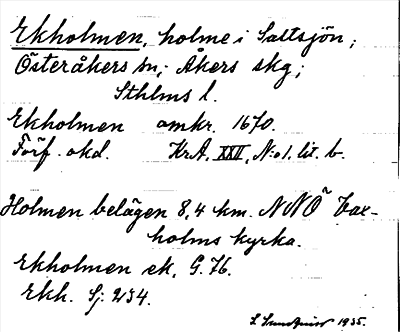 Ekholmen, holme i Saltsjön;
Österåkers sn; Åkers skg;
Sthlms l.
Ekholmen omkr. 1670.
Förf. okd. KrA, XXII, N:o 1. lit. b.
Holmen belägen 8,4 km. NNÖ Vax-
holms kyrka.
Ekholmen ek. G. 76.
Ekh. Sj. 234.
S. Sundqvist 1935.